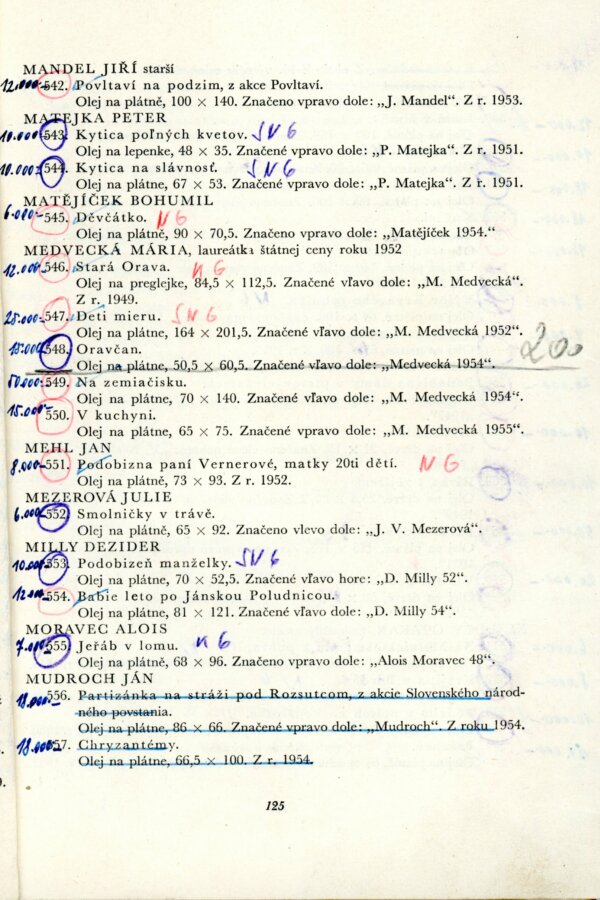 MANDEL JIŘÍ starší
12.000- 542. Povltaví na podzim, z akce Povltaví.
Olej na plátně, 100 × 140. Značeno vpravo dole: „J. Mandel“. Z r. 1953.
MATEJKA PETER
10.000- 543. Kytica poľných kvetov. SNG
Olej na lepenke, 48 × 35. Značené vpravo dole: „P. Matejka“. Z r. 1951.
10.000- 544. Kytica na slávnosť. SNG
Olej na plátne, 67 × 53. Značené vpravo dole: „P. Matejka“. Z r. 1951.
MATĚJÍČEK BOHUMIL
6.000- 545. Děvčátko. NG
Olej na plátně, 90 × 70,5. Značeno vpravo dole: „Matějíček 1954.“
MEDVECKÁ MÁRIA, laureátka štátnej ceny roku 1952
12.000- 546. Stará Orava. NG
Olej na preglejke, 84,5 × 112,5. Značené vľavo dole: „M. Medvecká“.
Z r. 1949.
25.000- 547. Deti mieru. SNG
Olej na plátne, 164 × 201,5. Značené vľavo dole: „M. Medvecká 1952“.
548. Oravčan.
Olej na plátne, 50,5 × 60,5. Značené vľavo dole: „Medvecká 1954“.
549. Na zemiačisku.
Olej na plátne, 70 × 140. Značené vľavo dole: „M. Medvecká 1954“.
15.000- 550. V kuchyni.
Olej na plátne, 65 × 75. Značené vpravo dole: „M. Medvecká 1955“.
MEHL JAN
8.000- 551. Podobizna paní Vernerové, matky 20ti dětí. NG
Olej na plátně, 73 × 93. Z r. 1952.
MEZEROVÁ JULIE
6.000- 552. Smolničky v trávě.
Olej na plátně, 65 × 92. Značeno vlevo dole: „J. V. Mezerová“.
MILLY DEZIDER
10.000- 553. Podobizeň manželky. SNG
Olej na plátne, 70 × 52,5. Značené vľavo hore: „D. Milly 52“.
12.000- 554. Babie leto po Jánskou Poludnicou.
Olej na plátne, 81 × 121. Značené vľavo dole: „D. Milly 54“.
MORAVEC ALOIS
7.000- 555. Jeřáb v lomu. NG
Olej na plátně, 68 × 96. Značeno vpravo dole: „Alois Moravec 48“.
MUDROCH JÁN
18.000- 556. Partizánka na stráži pod Rozsutcom, z akcie Slovenského národ-
ného povstania.
Olej na plátne, 86 × 66. Značené vpravo dole: „Mudroch“. Z roku 1954.
18.000- 557. Chryzantémy.
Olej na plátne, 66,5 × 100. Z r. 1954.
125